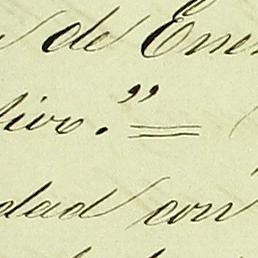 de Ene
tivo." =
dad con